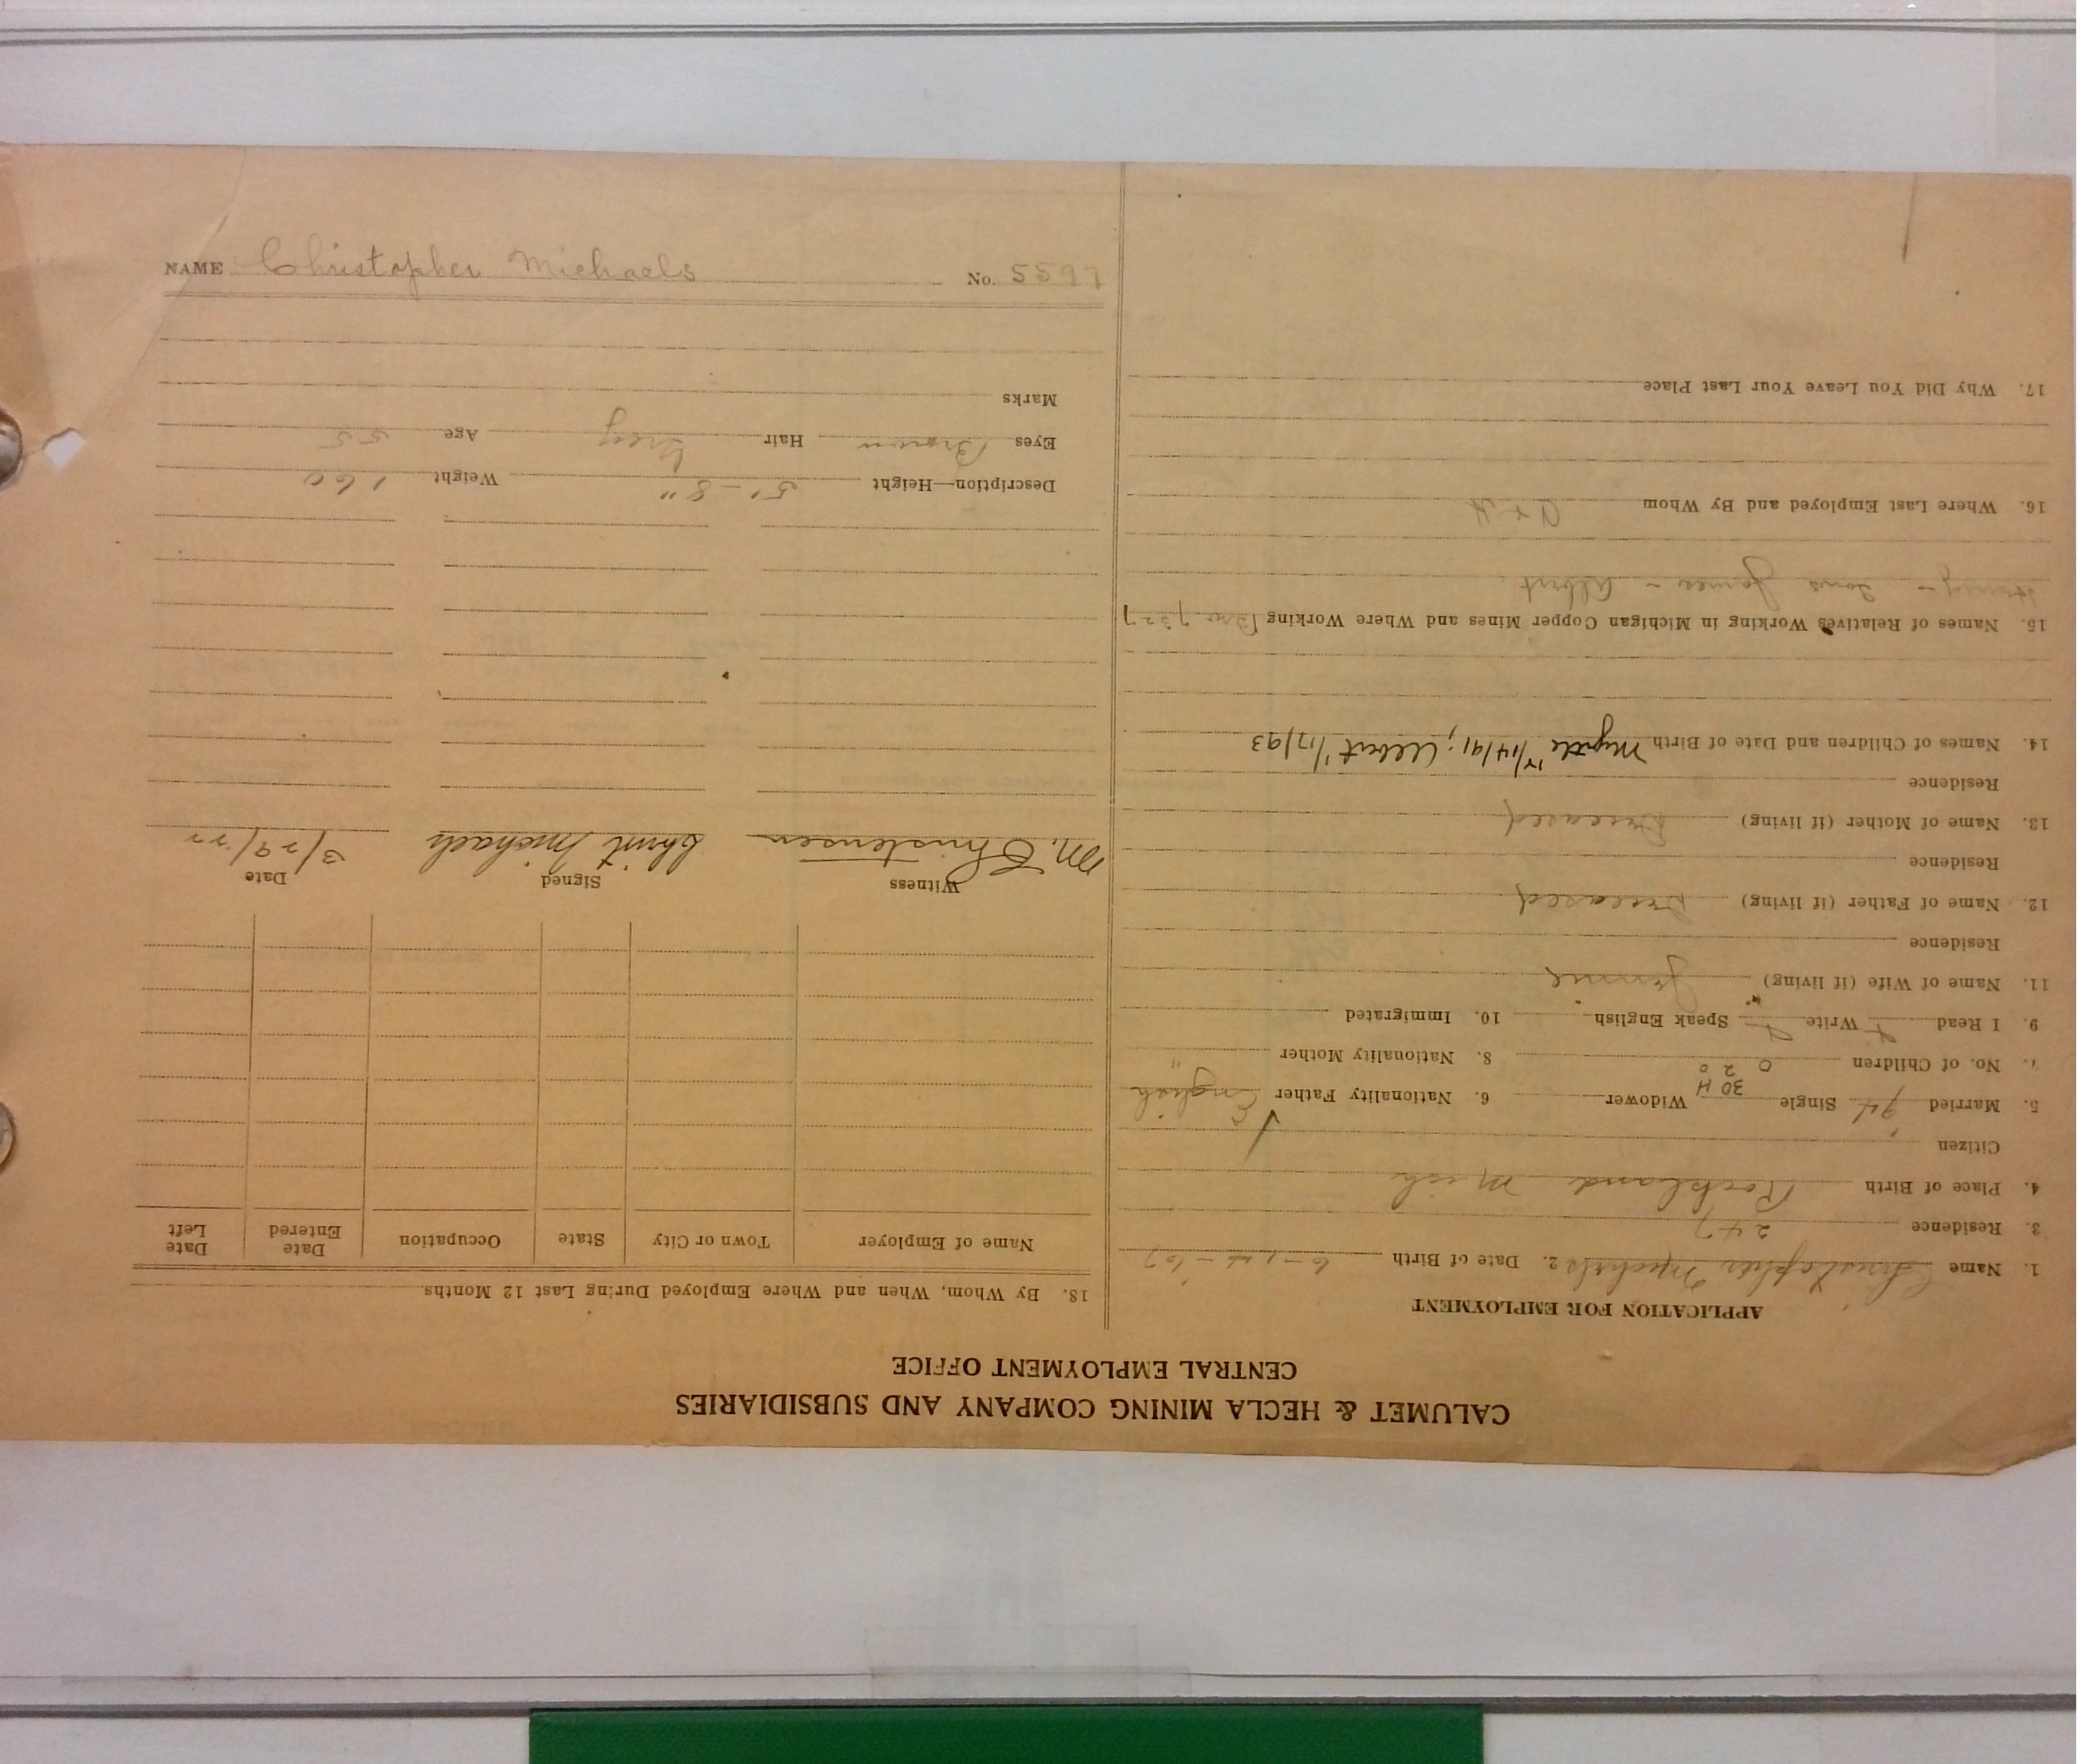 CALUMET & HECLA MINING COMPANY AND SUBSIDIARIES
CENTRAL EMPLOYMENT OFFICE
APPLICATION FOR EMPLOYMENT
1. Name Christopher Michaels 2. Date of Birth 6-14-'67
3. Residence 247
4. Place of Birth Rockland Mich
Citizen
5. Married Single Widower 6. Nationality Father English
30 H
7. No. of Children 0 2 0 8. Nationality Mother "
9. I Read Write Speak English 10. Immigrated
11. Name of Wife (if living) Jennie
Residence
12. Name of Father (if living) Deceased
Residence
13. Name of Mother (if living) Deceased
Residence
14. Names of Children and Date of Birth Myrtle 12/14/91; Albert 1/17/93
15. Names of Relatives Working in Michigan Copper Mines and Where Working
Henry - Sons James - Albert
16. Where Last Employed and By Whom C & H
17. Why Did You Leave Your Last Place
18. By Whom, When and Where Employed During Last 12 Months
Name of Employer Town or City State Occupation Date Entered Date Left
Witness Signed Date
M. Christensen Christ Michaels 3/29/22
Description—Height 5'-8" Weight 160
Eyes Brown Hair Grey Age 55
Marks
NAME Christopher Michaels No. 5597